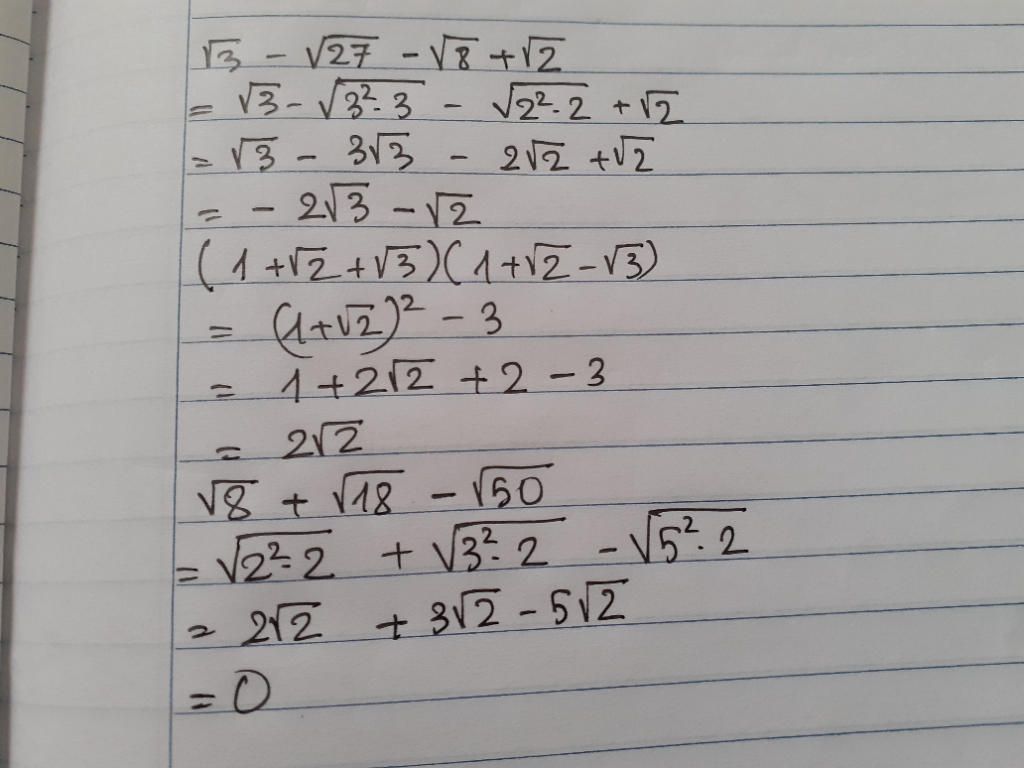 √3 - √27 - √8 + √2
= √3 - √(3²·3) - √(2²·2) + √2
= √3 - 3√3 - 2√2 + √2
= - 2√3 - √2
(1 + √2 + √3)(1 + √2 - √3)
= (1+√2)² - 3
= 1 + 2√2 + 2 - 3
= 2√2
√8 + √18 - √50
= √(2²·2) + √(3²·2) - √(5²·2)
= 2√2 + 3√2 - 5√2
= 0